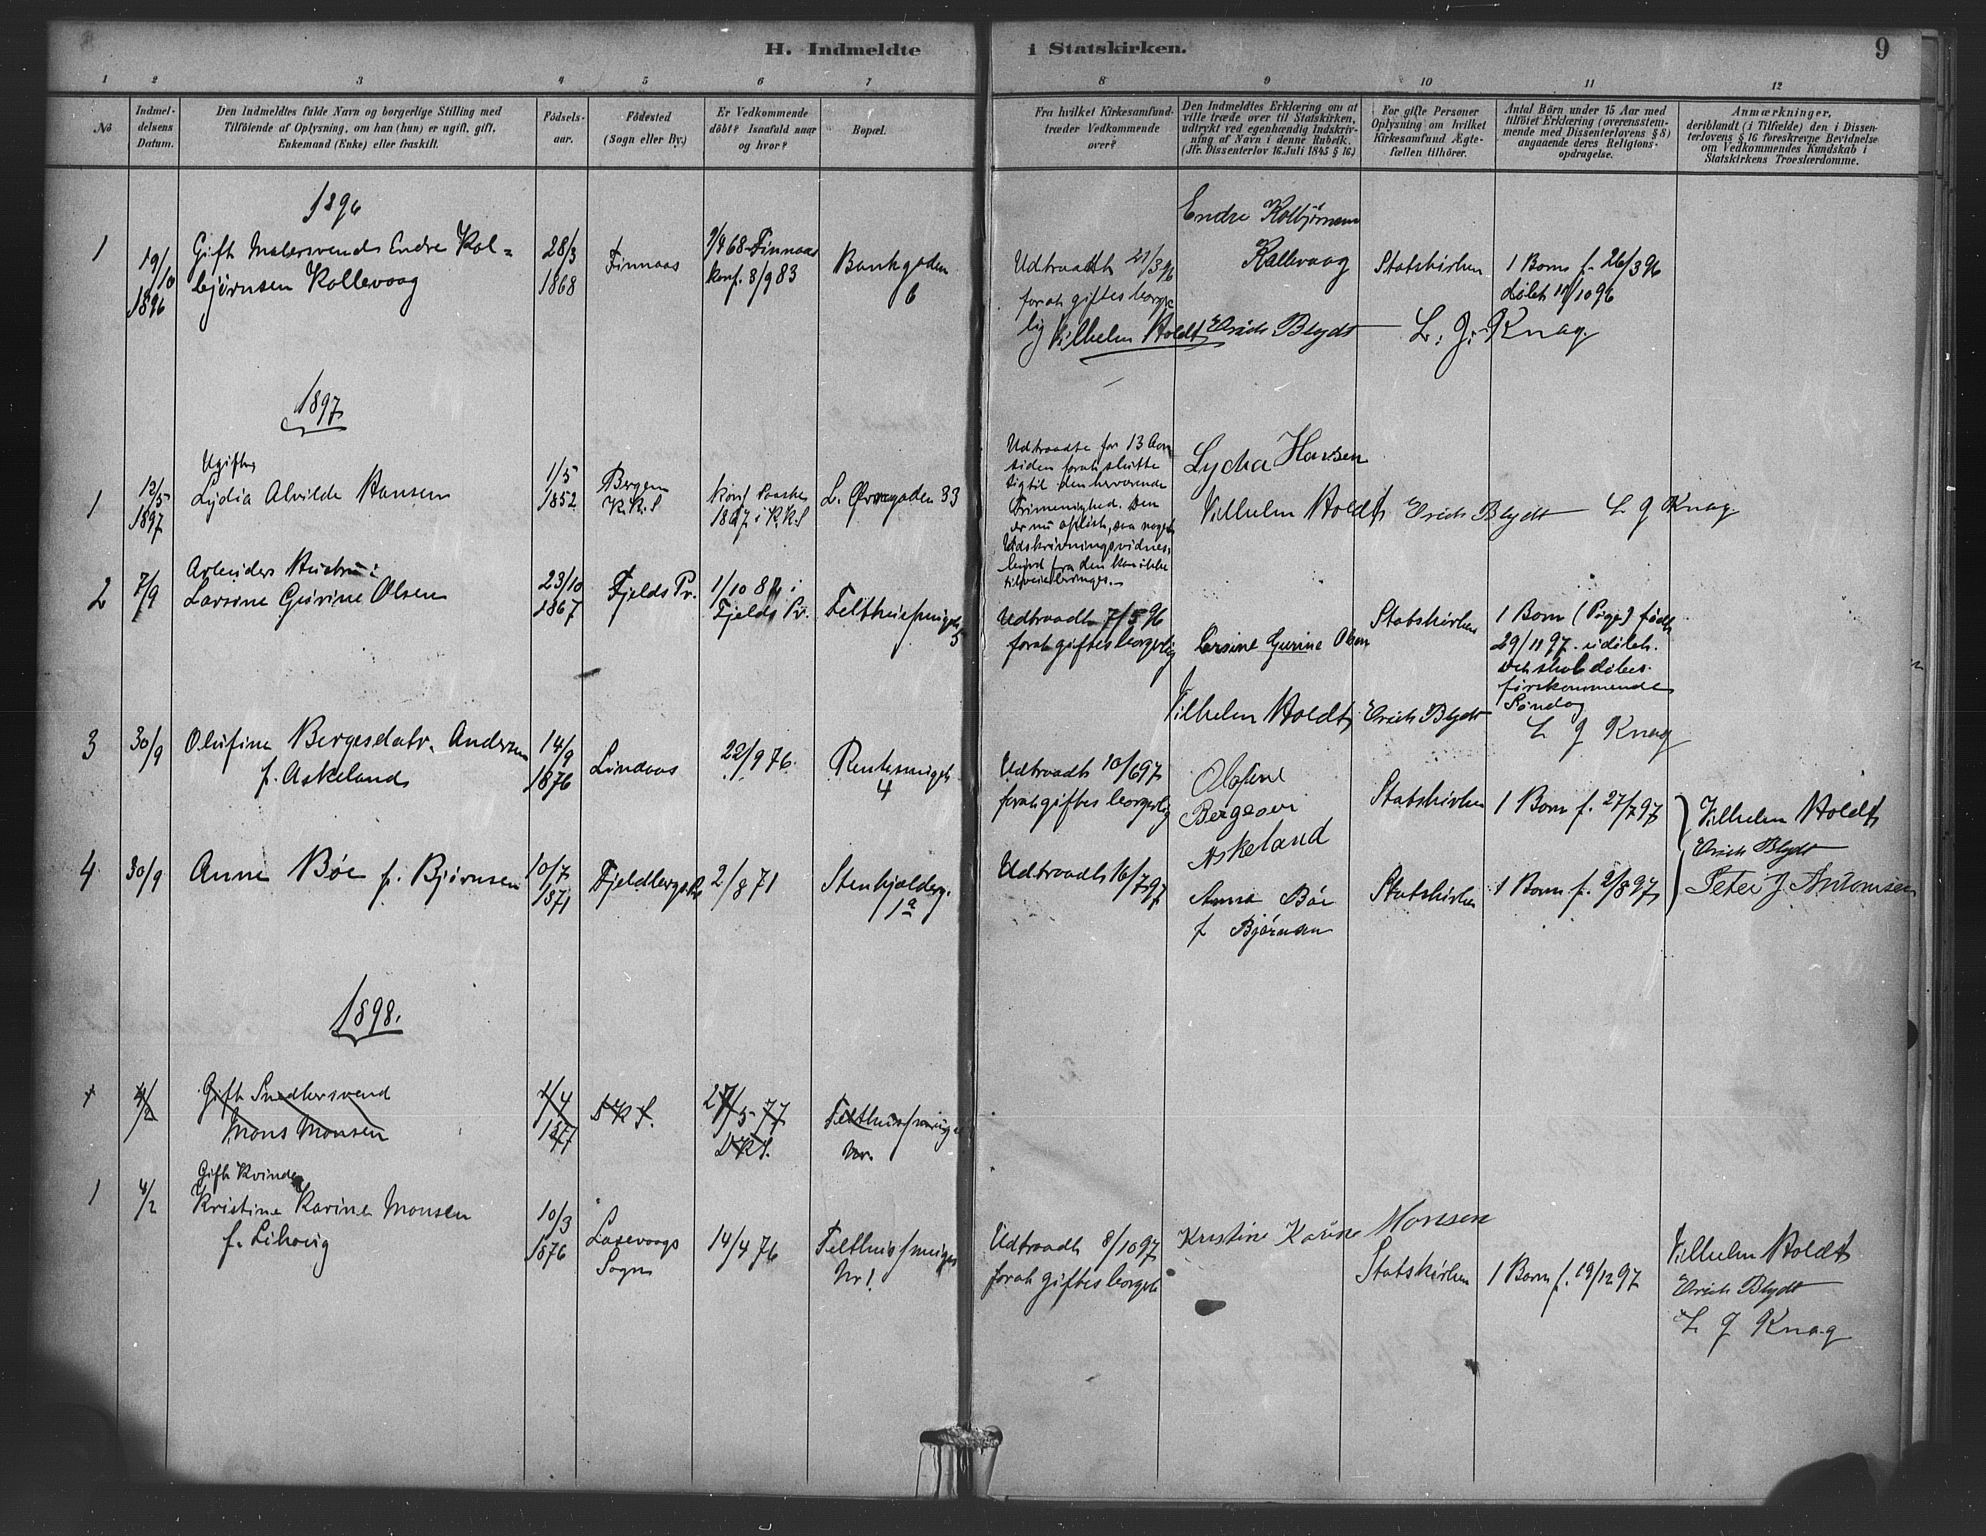 H. Indmeldte i Statskirken.
9
1 2 3 4 5 6 7 8 9 10 11 12
No
Indmel-
delsens
Datum.
Den Indmeldtes fulde Navn og borgerlige Stilling med
Tilföiende af Oplysning, om han (hun) er ugift, gift,
Enkemand (Enke) eller fraskilt.
Födsels-
aar.
Födested
(Sogn eller By.)
Er Vedkommende
döbt? Isaafald naar
og hvor?
Bopæl.
Fra hvilket Kirkesamfund
træder Vedkommende
over?
Den Indmeldtes Erklæring om at
ville træde over til Statskirken,
udtrykt ved egenhændig Indskriv-
ning af Navn i denne Rubrik.
(Jfr. Dissenterlov 16. Juli 1845 § 16.)
For gifte Personer
Oplysning om hvilket
Kirkesamfund Ægte-
fællen tilhörer.
Antal Börn under 15 Aar med
tilföiet Erklæring (overensstem-
mende med Dissenterlovens § 8)
angaaende deres Religions-
opdragelse.
Anmærkninger,
deriblandt (i Tilfælde) den i Dissen-
terlovens § 16 foreskrevne Bevidnelse
om Vedkommendes Kundskab i
Statskirkens Troeslærdomme.
1896
1
19/10
1896
Gift Malersvend Endre Kol-
bjørnsen Kallevaag
28/3
1868
Finnaas
68 Finnaas
konf. 8/9 83
Bankgaden
6
Udtraadt 21/3 96
for at giftes borger
lig
Endre Kolbjørnsen
Kallevaag
Statskirken
1 Barn f. 26/3 96
døbt 10/10 96
Vilhelm Holdt Erich Blydt L. J. Knag.
1897
1
13/5
1897
Ugifte
Lydia Alvilde Hansen
1/5
1852
Bergen
K.K.S
konf Paaske
1867 i K.K.S
L. Øvregaden 33
Udtraadte for 13 Aar
siden for at slutte
sig til den herværende
Frimenighed. Den
er nu opløst, saa noget
Udskrivningsvidnes-
byrd fra den kan ikke
tilveiebringes.
Lydia Hansen
Vilhelm Holdt Erich Blydt L J Knag
2
7/9
Arbeiders Hustru:
Larsine Gurine Olsen
23/10
1867
Fjelds Pr.
1/10 8 i
Fjelds Pr.
Felthussmuget
5
Udtraadt 7/5 96
for at giftes borgerlig
Larsine Gurine Olsen
Statskirken
1 Barn (Pige) født
29/11 97. udøbt.
Det skal døbes
førstkommende
Søndag
Vilhelm Holdt Erich Blydt L J Knag
3
30/9
Olufine Bergesdatr. Andersen
f. Askelands
14/9
1876
Lindaas
22/9 76.
4
Udtraadt 10/6 97
for at giftes borgerlig
Olufine
Askeland
Statskirken
1 Barn f. 27/7 97
4
30/9
Anne Bøe f. Bjørnsen
10/7
1871
Fjeldbergs Pr
2/8 71
Stenkjelderg.
1a
Udtraadt 16/7 97
Anna Bøe
f Bjørnsen
Statskirken
1 Barn f. 2/8 97
Vilhelm Holdt
Erich Blydt
Peter J. Antonisen
1898.
1
4/2
Gift Snedkersvend
Mons Monsen
4
1877
D K S.
27/5 77
D K S.
Felthussmuget
Nr.
1
4/2
Gift Kvinde
Kristine Karine Monsen
f. Lihovig
10/3
1876
Laxevaags
Sogn
14/4 76
Felthussmuget
Nr 1
Udtraadt 8/10 97
for at giftes borgerl
Kristine Karine Monsen
Statskirken
1 Barn f. 19/12 97
Vilhelm Holdt
Erich Blydt
L J Knag